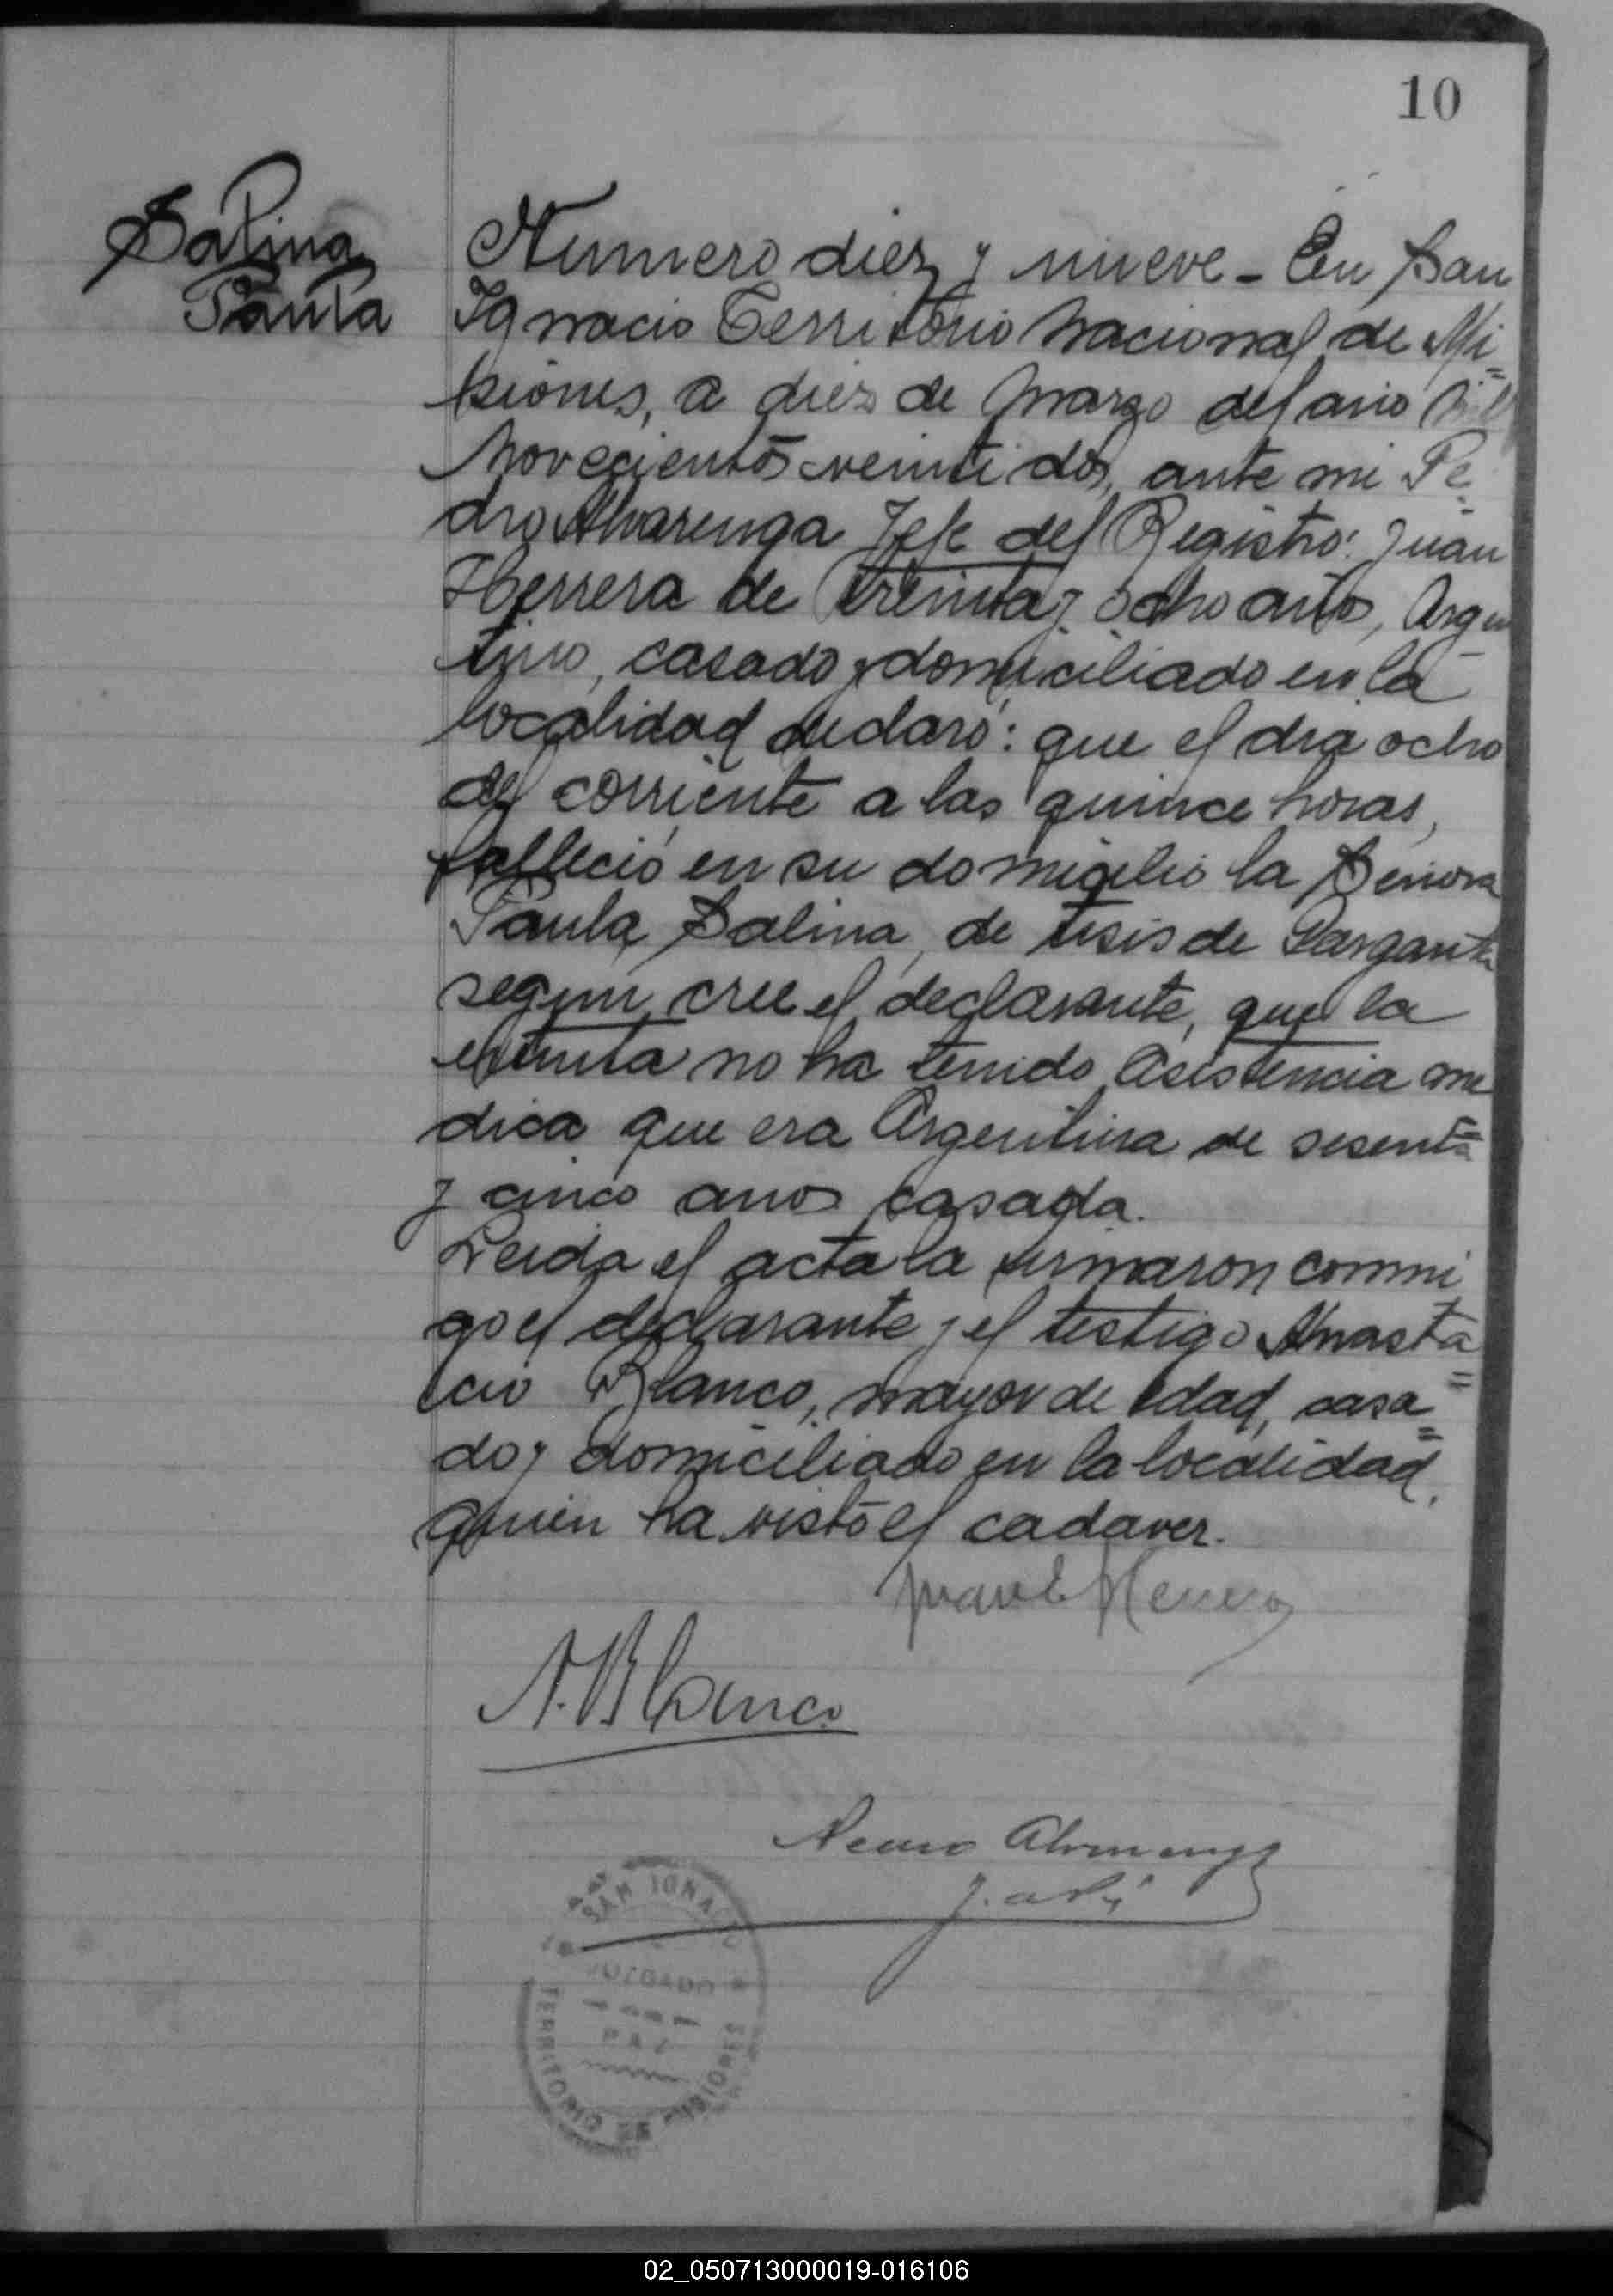 10
Salina
Paula
Numero diez y nueve - En San
Ignacio Territorio Nacional de Mi=
siones, a diez de Marzo del año Mil
Novecientos veinti dos, ante mi Pe=
dro Alvarenga Jefe del Registro: Juan
Herrera de treinta y ocho años, Argen
tino, casado y domiciliado en la
localidad declaró: que el dia ocho
del corriente a las quince horas,
falleció en su domicilio la Señora
Paula Salina, de tisis de Garganta
segun cree el declarante, que la
extinta no ha tenido asistencia me
dica que era Argentina de sesenta
y cinco anos casada.
Leida el acta la firmaron conmi
go el declarante y el testigo Anasta=
cio Blanco, mayor de edad, casa=
do y domiciliado en la localidad,
quien ha visto el cadaver.
Juan Herrera
A. Blanco
Pedro Alvarenga
SAN IGNACIO
JUZGADO
PAZ
TERRITORIO DE MISIONES
02_050713000019-016106